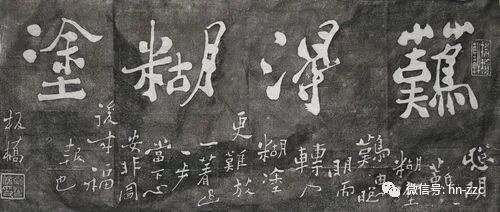 難得糊塗
聰
難
糊塗
難由聰
明而
轉入
糊塗
更難放
一著退
一步
當下心
安非圖
後來福
報也
板橋
微信号: hn-zzc